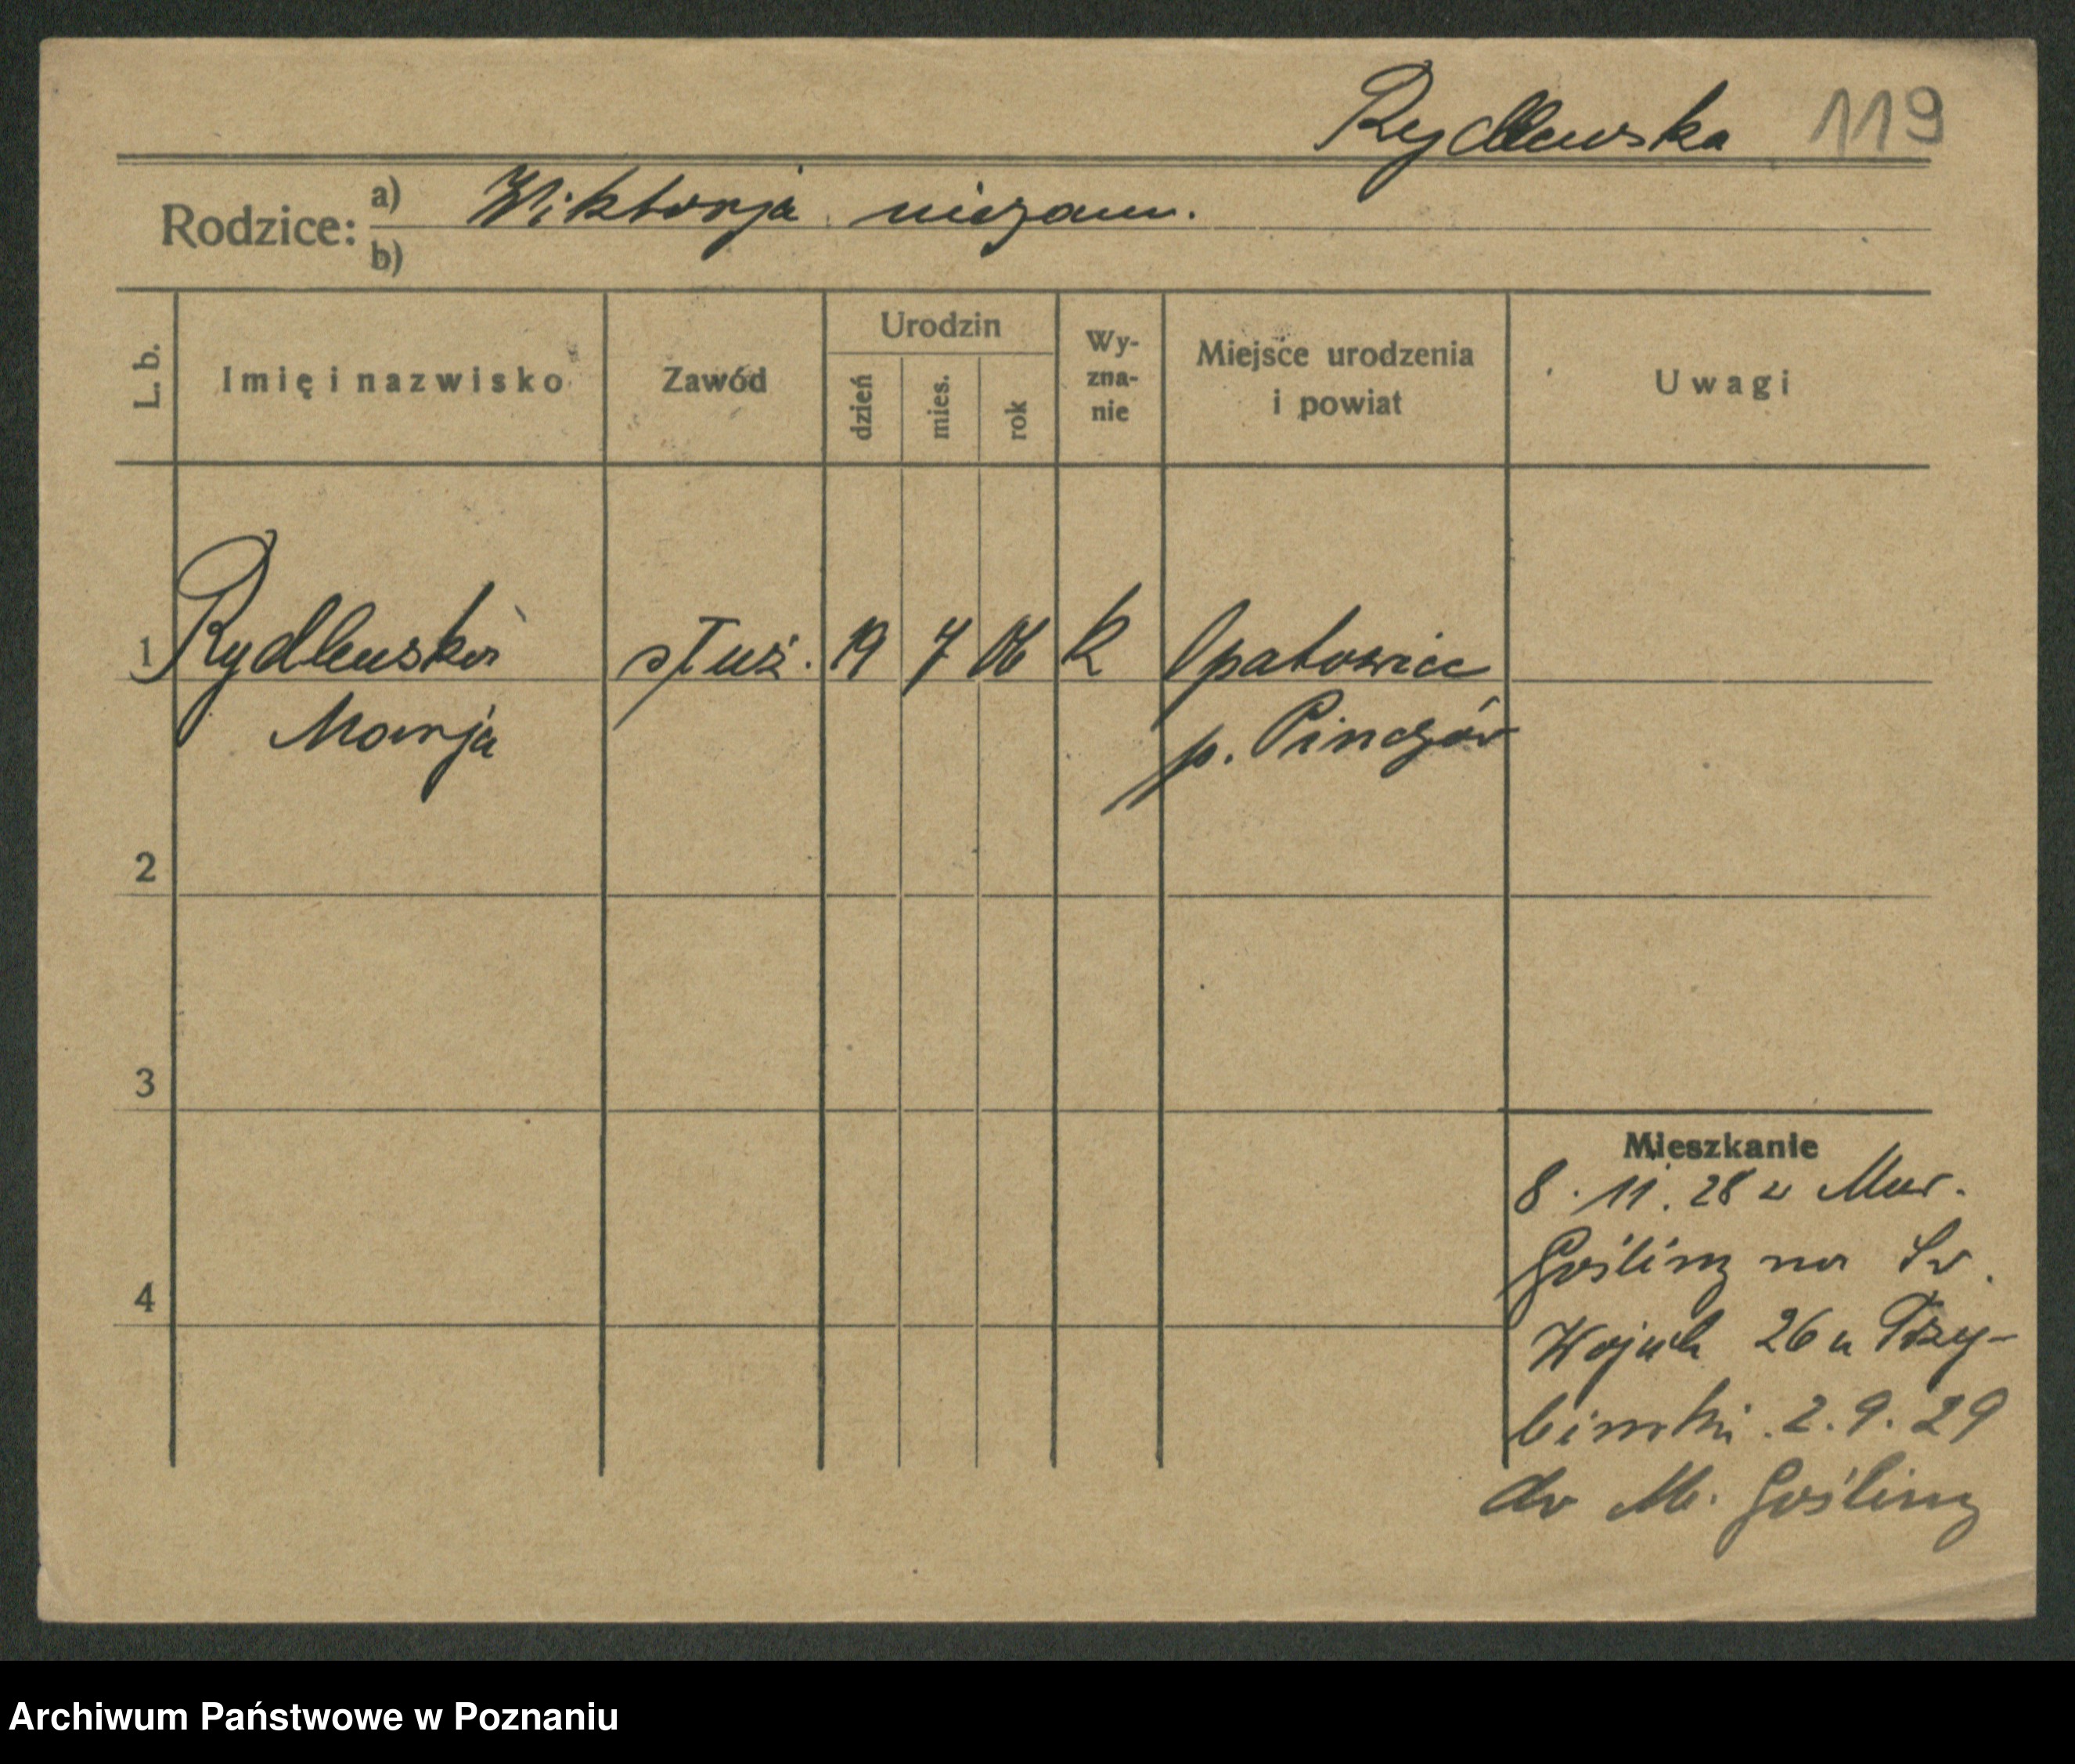 Rydlewska 119
Rodzice: a) Wiktorja niezam.
b)
L. b.
Imię i nazwisko
Zawód
Urodzin
dzień
mies.
rok
Wy-
zna-
nie
Miejsce urodzenia
i powiat
Uwagi
1 Rydlewska służ. 19 7 06 k Opatowice
Marja p. Pinczów
2
3
4
Mieszkanie
8.11.28 z Mur.
Gośliny na Św.
Wojciech 26 u Przy-
binski. 2.9.29
do M. Gośliny
Archiwum Państwowe w Poznaniu